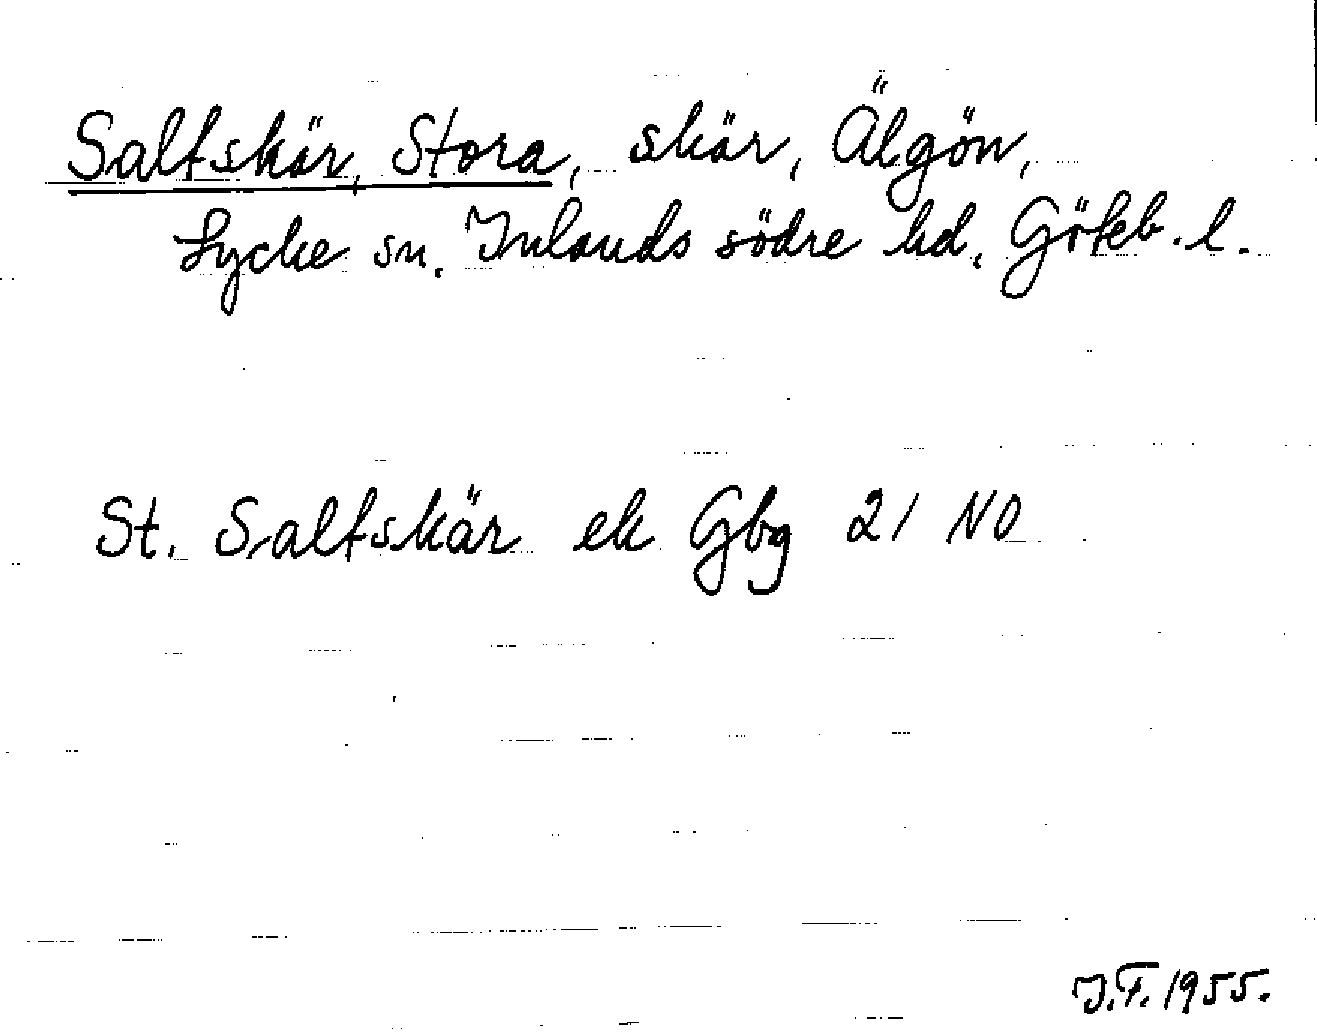 Saltskär, Stora, skär, Älgön,
Lycke sn. Inlands södre hd, Göteb. l.
St. Saltskär ek Gbg 21 NO
I.F. 1955.